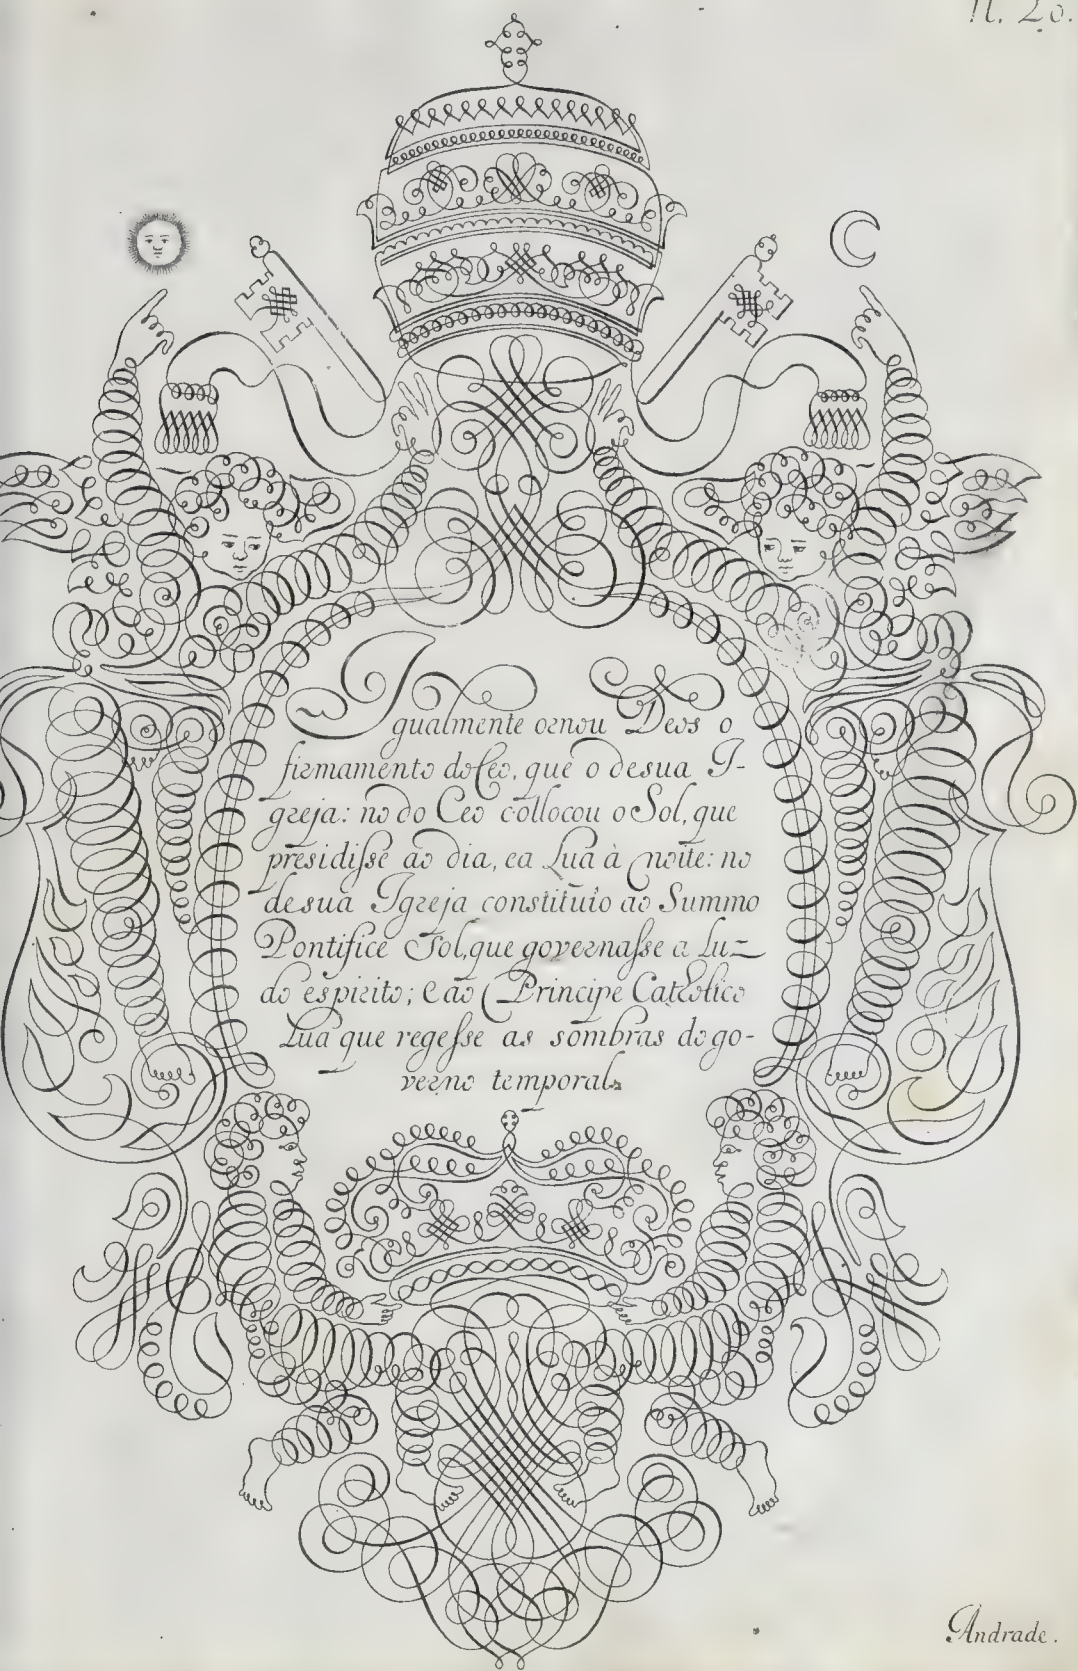 N. 20.
Igualmente ornou Deos o
firmamento do Ceo, que o de sua I-
greja: no do Ceo collocou o Sol, que
presidisse ao dia, e a Lua à noite: no
de sua Igreja constituio ao Summo
Pontifice Sol, que governasse a Luz
do espirito; e ao Principe Catholico
Lua que regesse as sombras do go-
verno temporal.
Andrade.